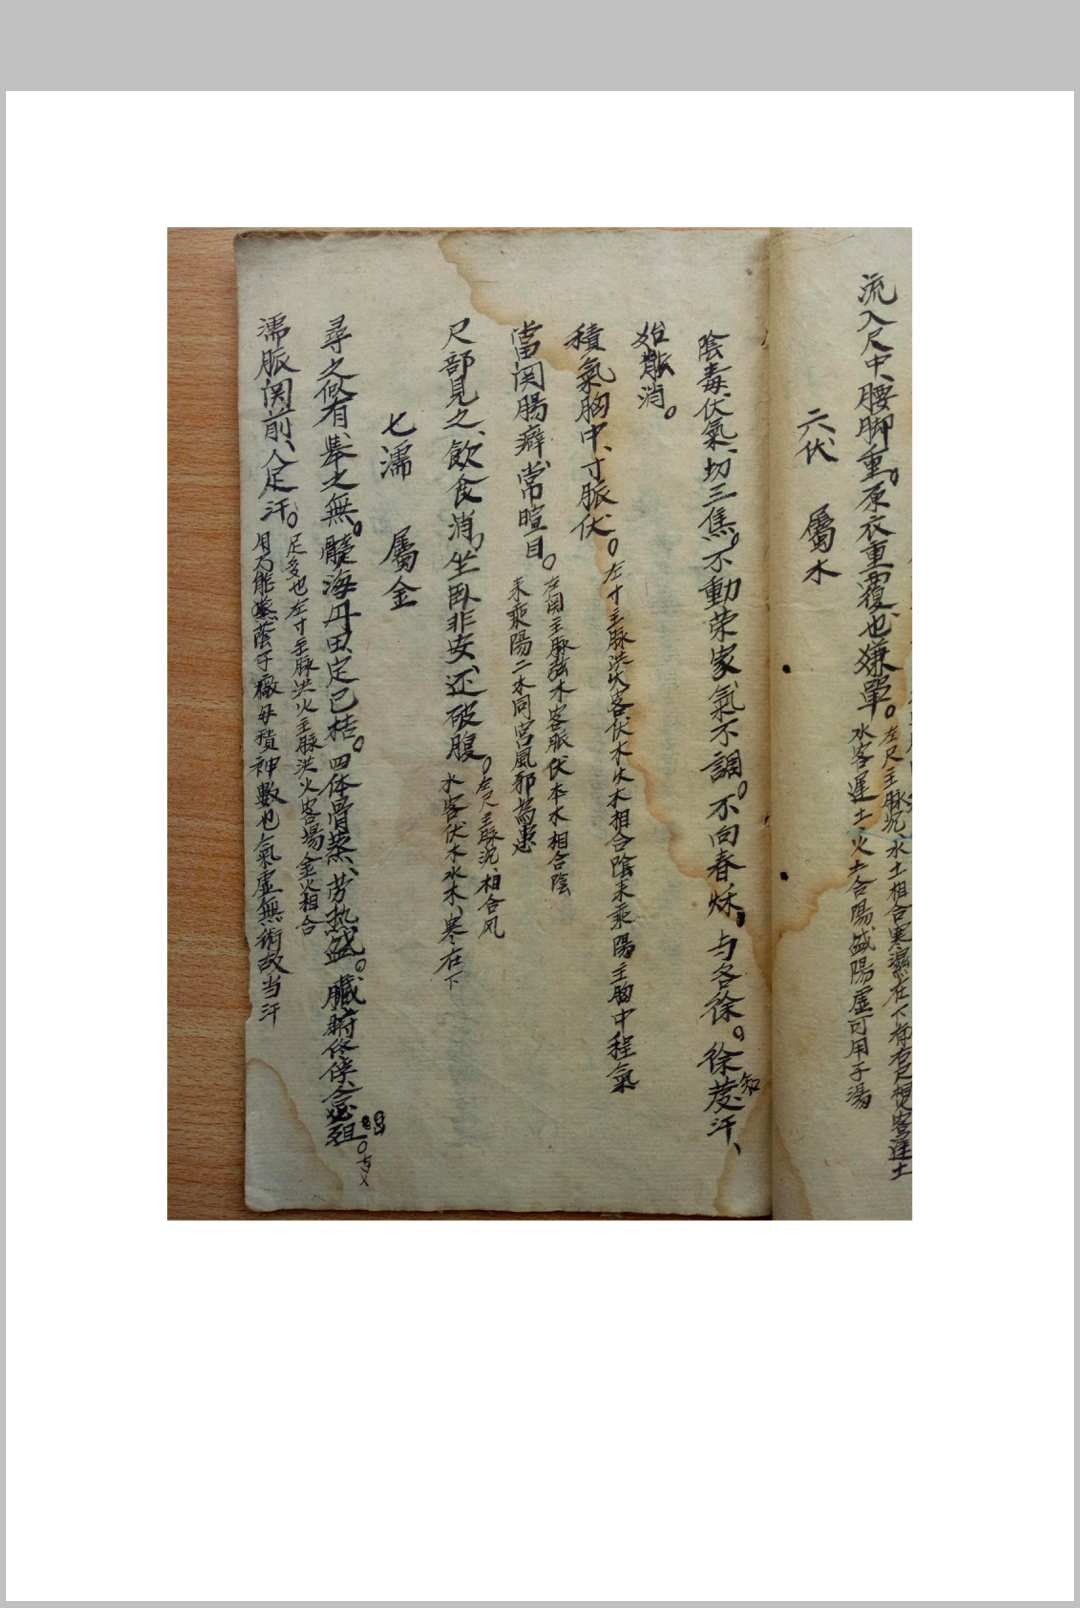 流入尺中、腰脚重。原衣重覆也嫌單。
左尺主脉沉、水土相合寒濕在下
水客遲土、火土合陽盛陽虛可用子湯
六伏 屬水
陰毒伏氣、切三焦。不動荣家氣不調。不向春秌。与各徐。徐發汗、
知
始散消。
積氣胸中、寸脈伏。
左寸主脉洪火客伏水火木相合陰來乘陽主胸中程氣
當関腸癖、常暄目。
左関主脉弦木客脈伏本水相合陰
來乘陽二木同宮風邪為患
尺部見之、飲食消、坐卧非安、还破腹。
左尺主脉沉、相合风
水客伏木水木、寒在下
七濡 屬金
尋之似有、舉之無。髓海丹田、定已枯。四体骨蒸、劳热盛。臟腑終
濡脈関前、人足汗。
足多也左寸主脉洪火主脉洪火客場金火相合
積神數也氣虛無術故当汗